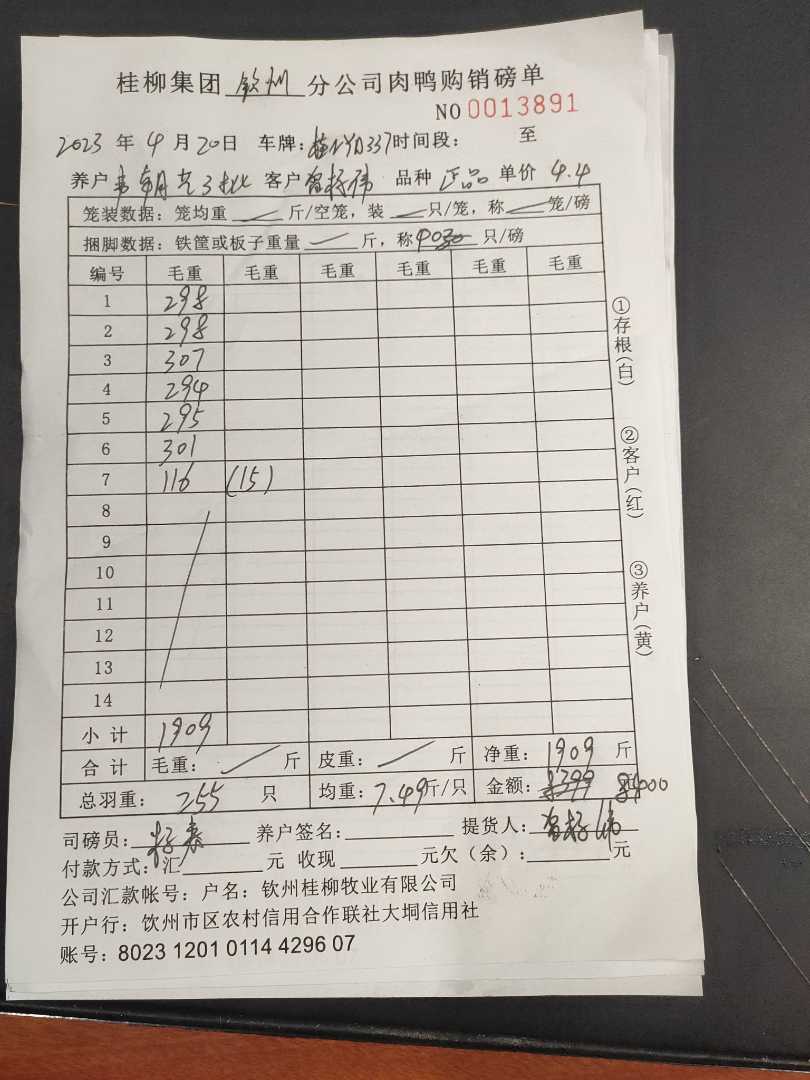 桂柳集团 钦州 分公司肉鸭购销磅单
NO 0013891
2023 年 4 月 20日 车牌: 时间段: 至
养户 韦朝 3批 客户 曾 伟 品种 正品 单价 4.4
笼装数据: 笼均重 斤/空笼, 装 只/笼, 称 笼/磅
捆脚数据: 铁筐或板子重量 斤, 称 只/磅
编号 毛重 毛重 毛重 毛重 毛重 毛重
1 298
2 298
3 307
4 294
5 295
6 301
7 116 (15)
8
9
10
11
12
13
14
小计 1909
合计 毛重: 斤 皮重: 斤 净重: 1909 斤
总羽重: 255 只 均重: 7.49斤/只 金额: 8400
①存根(白)
②客户(红)
③养户(黄)
司磅员: 养户签名: 提货人: 曾 伟
付款方式: 汇 元 收现 元欠(余): 元
公司汇款帐号: 户名: 钦州桂柳牧业有限公司
开户行: 钦州市区农村信用合作联社大垌信用社
账号: 8023 1201 0114 4296 07